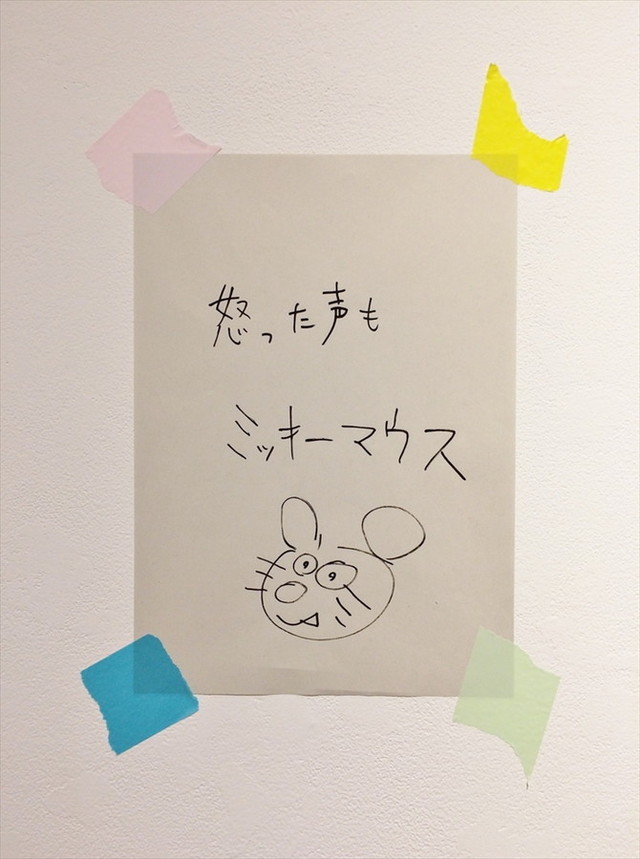 怒った声も
ミッキーマウス